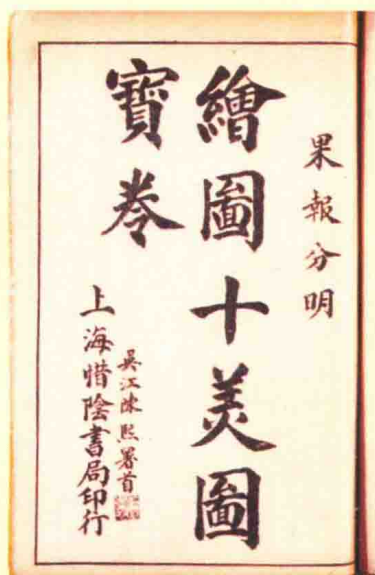 果報分明
繪圖十美圖
寶卷
吳江陳熙署首
上海惜陰書局印行